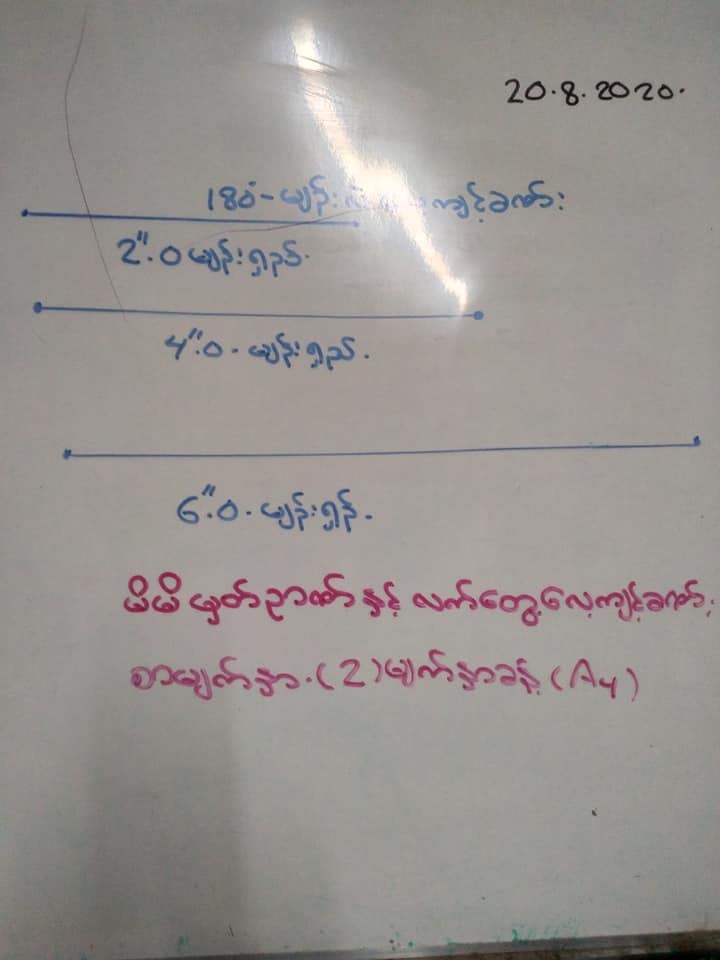 20.8.2020.
180°-မျဉ်း ကျင့်ခဏ်း
2".0 မျဉ်းရှည်.
4".0 - မျဉ်းရှည်.
6".0. မျဉ်းရှန်.
မိမိ မှတ်ဉာဏ် နှင့် လက်တွေ့လေ့ကျင့်ခဏ်း
စာမျက်နှာ.(2)မျက်နှာခန့် (A4)